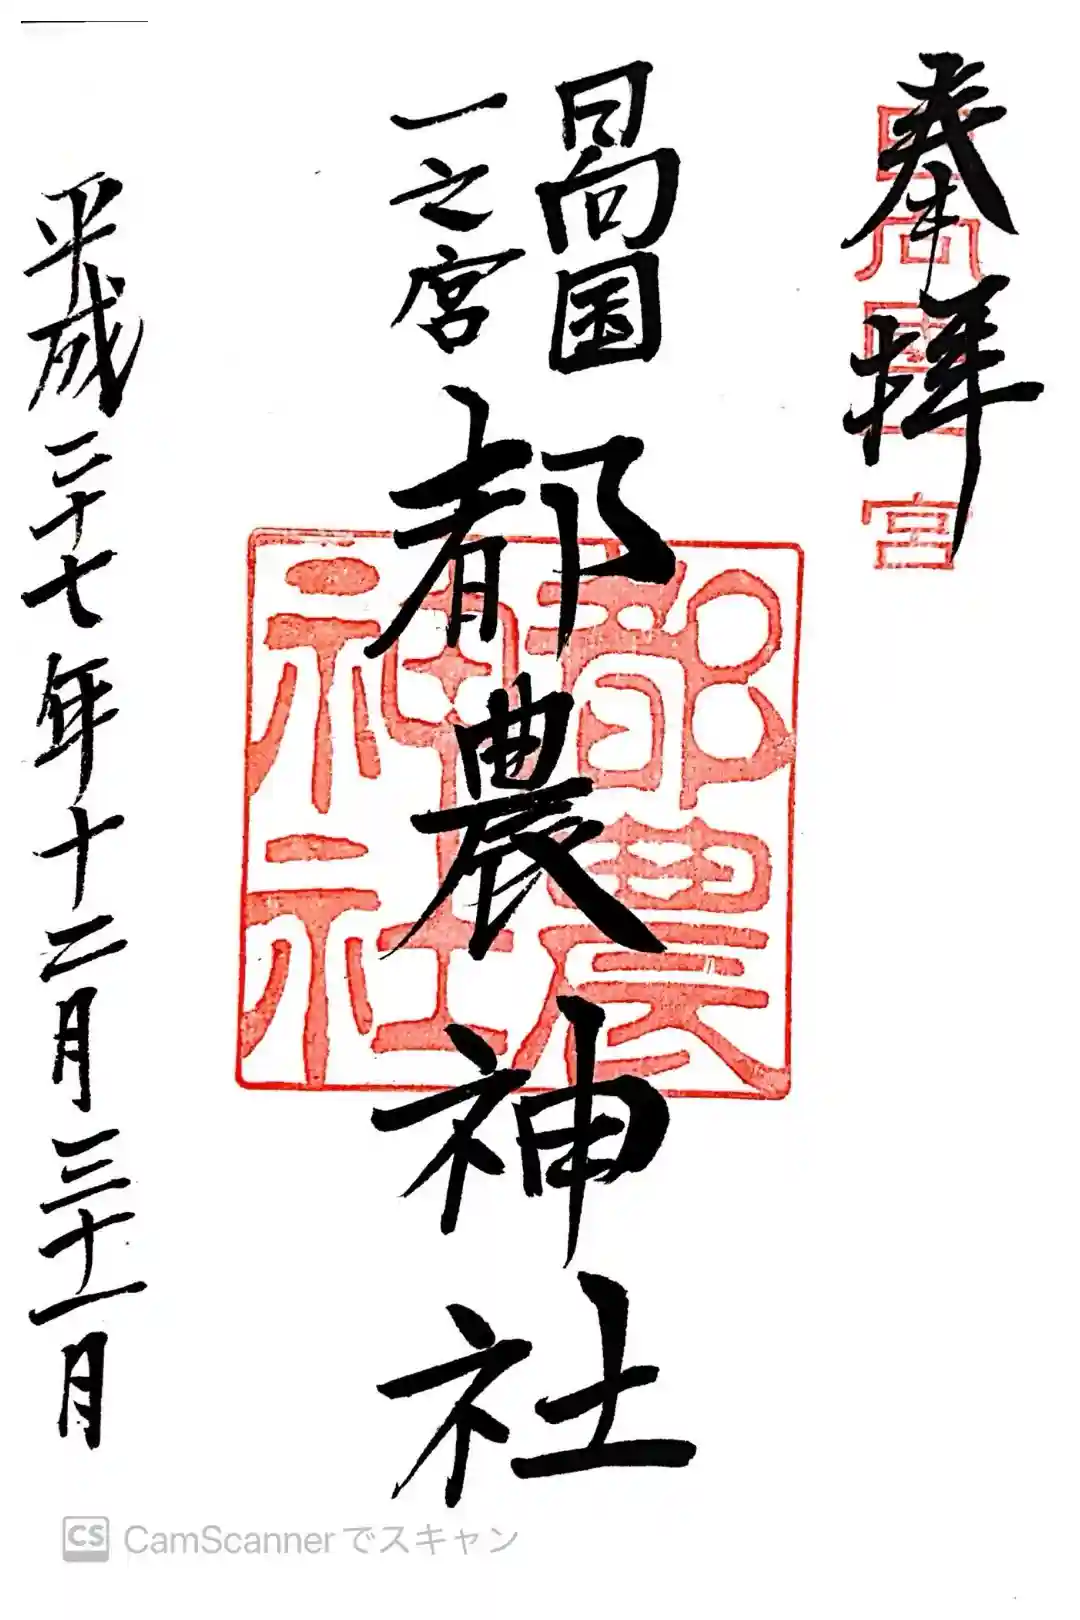 奉拝
日向國一宮
日向国
一之宮
都農神社
都農
神社
平成二十七年十二月三十一月
CS CamScannerでスキャン